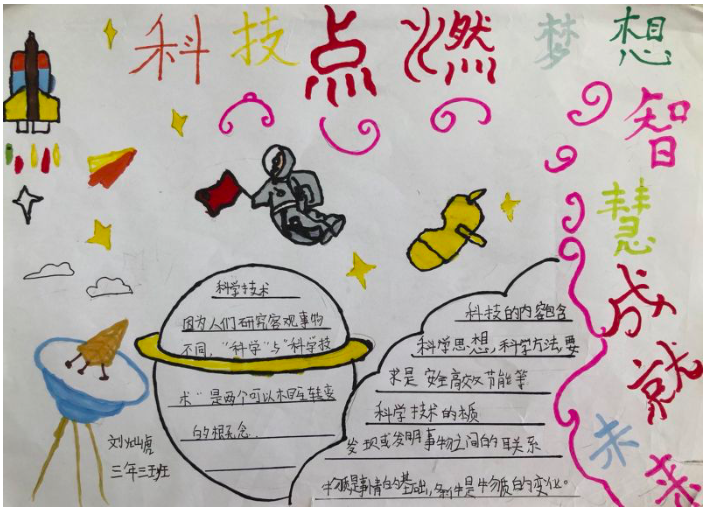 科技点燃梦想
智慧成就未来
科学技术
因为人们研究客观事物
不同，"科学"与"科学技
术"是两个可以相互转变
的概念.
科技的内容包含
科学思想,科学方法,要
求是 安全高效 节能等
科学技术的本质
发现或发明事物之间的联系
物质是事情的基础,条件是物质的变化。
刘灿虎
三年三班